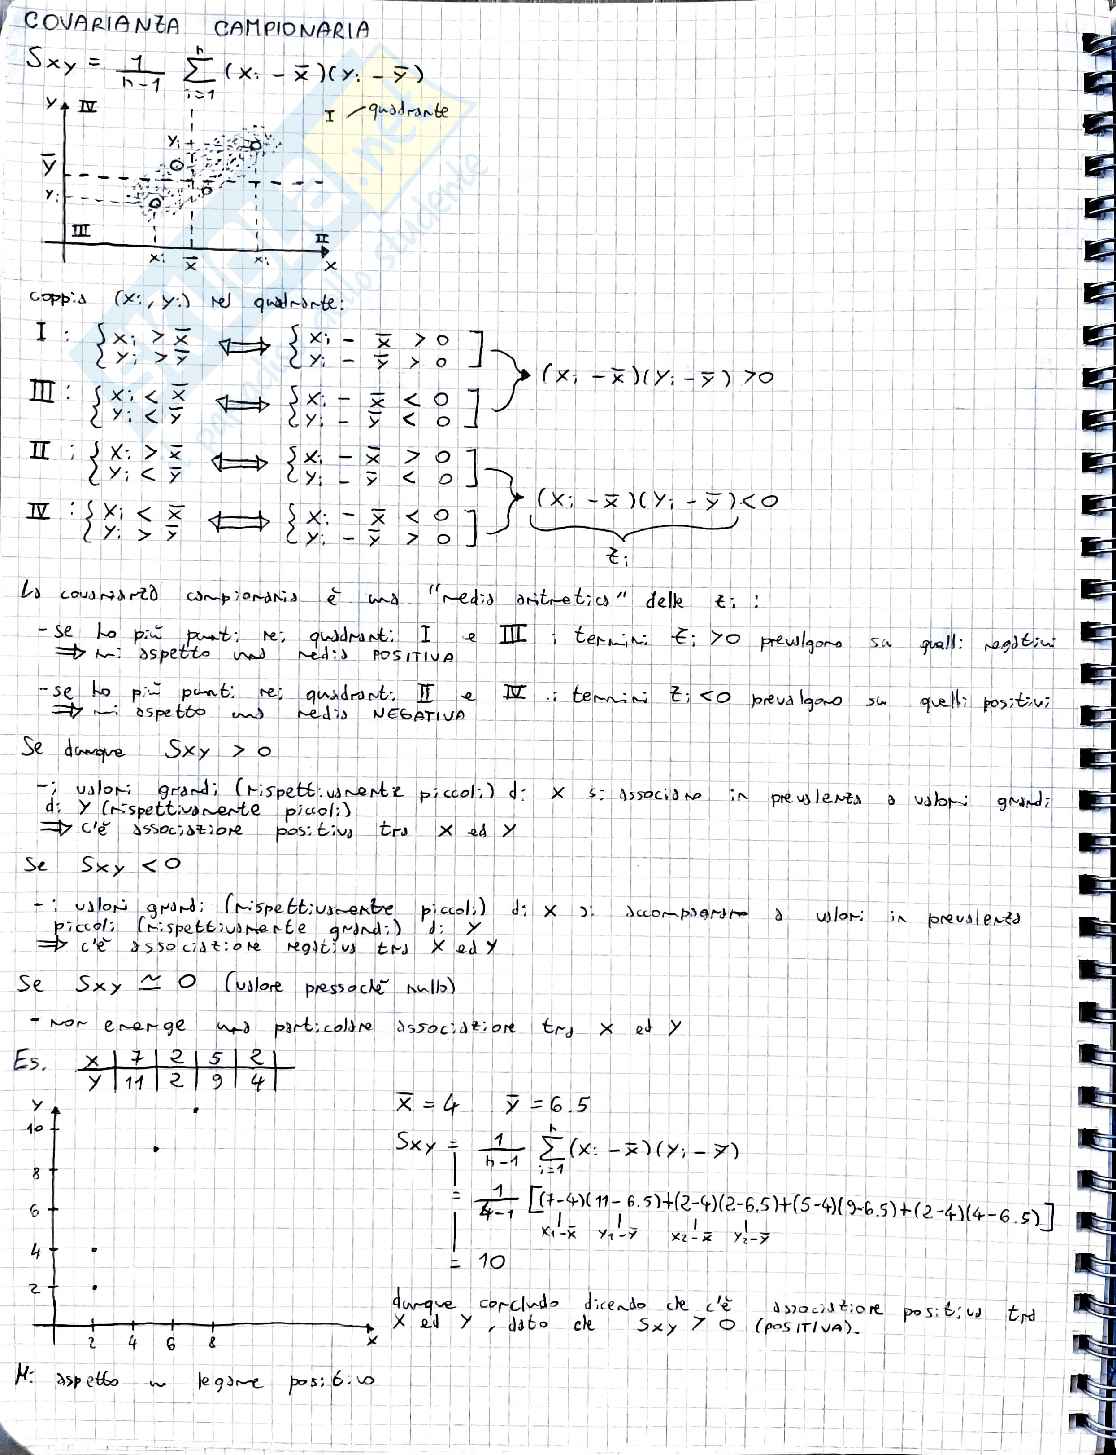 COVARIANZA CAMPIONARIA
Sxy = 1/(n-1) Σ_{i=1}^{n} (xi - x̄)(yi - ȳ)
Y IV I quadrante
yi
ȳ
yi
III II
xi x̄ xi x
coppia (xi, yi) nel quadrante:
I : { xi > x̄ ⟺ { xi - x̄ > 0 ]
{ yi > ȳ { yi - ȳ > 0 ]
(xi - x̄)(yi - ȳ) > 0
III : { xi < x̄ ⟺ { xi - x̄ < 0 ]
{ yi < ȳ { yi - ȳ < 0 ]
II : { xi > x̄ ⟺ { xi - x̄ > 0 ]
{ yi < ȳ { yi - ȳ < 0 ]
(xi - x̄)(yi - ȳ) < 0
IV : { xi < x̄ ⟺ { xi - x̄ < 0 ]
{ yi > ȳ { yi - ȳ > 0 ]
zi
La covarianza campionaria è una "media aritmetica" delle zi :
- se ho più punti nei quadranti I e III i termini zi > 0 prevalgono su quelli negativi
⟹ mi aspetto una media POSITIVA
- se ho più punti nei quadranti II e IV i termini zi < 0 prevalgono su quelli positivi
⟹ mi aspetto una media NEGATIVA
Se dunque Sxy > 0
- i valori grandi (rispettivamente piccoli) di x si associano in prevalenza a valori grandi
di Y (rispettivamente piccoli)
⟹ c'è associazione positiva tra X ed Y
Se Sxy < 0
- i valori grandi (rispettivamente piccoli) di X si accompagnano a valori in prevalenza
piccoli (rispettivamente grandi) di Y
⟹ c'è associazione negativa tra X ed Y
Se Sxy ≃ 0 (valore pressochè nullo)
- non emerge una particolare associazione tra X ed Y
Es. X | 7 | 2 | 5 | 2 |
Y | 11 | 2 | 9 | 4 |
Y
10
8
6
4
2
2 4 6 8 x
x̄ = 4 ȳ = 6.5
Sxy = 1/(n-1) Σ_{i=1}^{n} (xi - x̄)(yi - ȳ)
= 1/(4-1) [(7-4)(11-6.5)+(2-4)(2-6.5)+(5-4)(9-6.5)+(2-4)(4-6.5)]
x1-x̄ y1-ȳ x2-x̄ y2-ȳ
= 10
dunque concludo dicendo che c'è associazione positiva tra
X ed Y, dato che Sxy > 0 (POSITIVA).
Mi aspetto un legame positivo